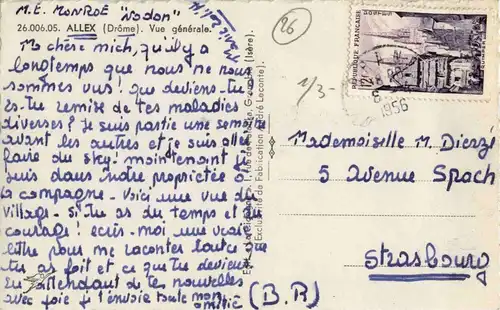 M.E. MONROE "Nodon"
26.006.05. ALLEX (Drôme). Vue générale.
Ma chère mich, qu'il y a
longtemps que nous ne nous
sommes vus! que deviens-tu
es-tu remise de tes maladies
diverses? Je suis partie une semaine
avant les autres et je suis allée
faire du sky! maintenant je
suis dans notre propriétée à
la campagne. Voici une vue du
village. Si tu as du temps et du
courage! écris-moi une vraie
lettre pour me raconter tout ce que
tu as fait et ce que tu deviens
En attendant de tes nouvelles
avec joie je t'envoie toute mon
amitié (B.R)
26
1/3-
RÉPUBLIQUE FRANÇAISE
1956
Mademoiselle M.
5 Avenue Spach
Strasbourg
(Isère).
Exclusivité de Fabrication André Leconte).